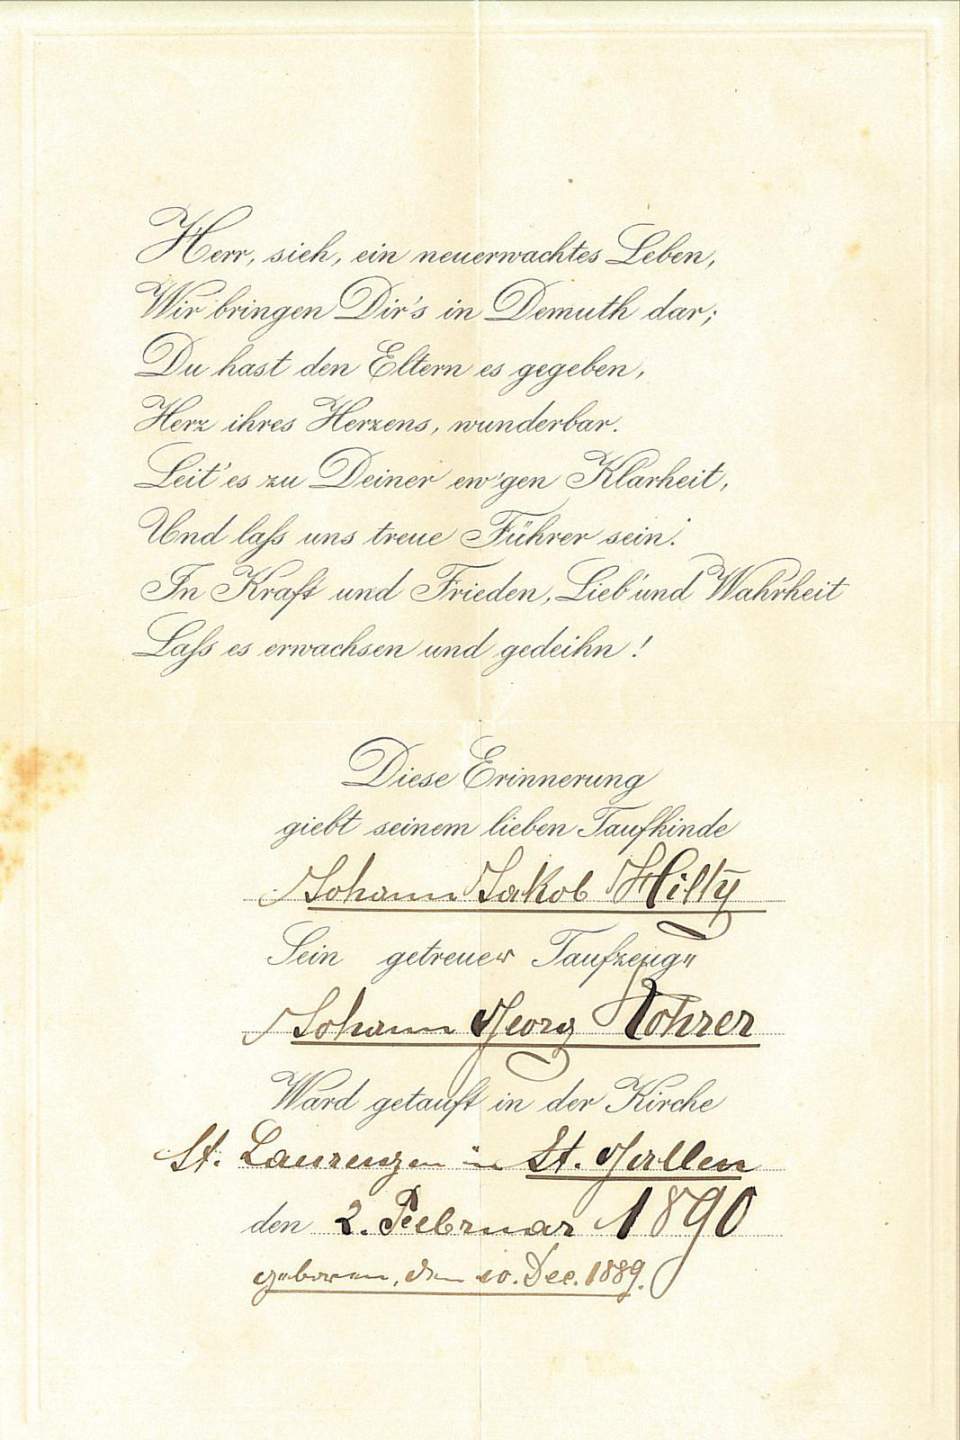 Herr, sieh, ein neuerwachtes Leben,
Wir bringen Dir's in Demuth dar;
Du hast den Eltern es gegeben,
Herz ihres Herzens, wunderbar.
Leit' es zu Deiner ew'gen Klarheit,
Und laſs uns treue Führer sein.
In Kraft und Frieden, Lieb' und Wahrheit
Laſs es erwachsen und gedeihn!
Diese Erinnerung
giebt seinem lieben Taufkinde
Johann Jakob Hilty
Sein getreuer Taufzeuge
Johann Georg Rohrer
Ward getauft in der Kirche
St. Laurenzen in St. Gallen
den 2. Februar 1890
geboren, den 10. Dec. 1889.